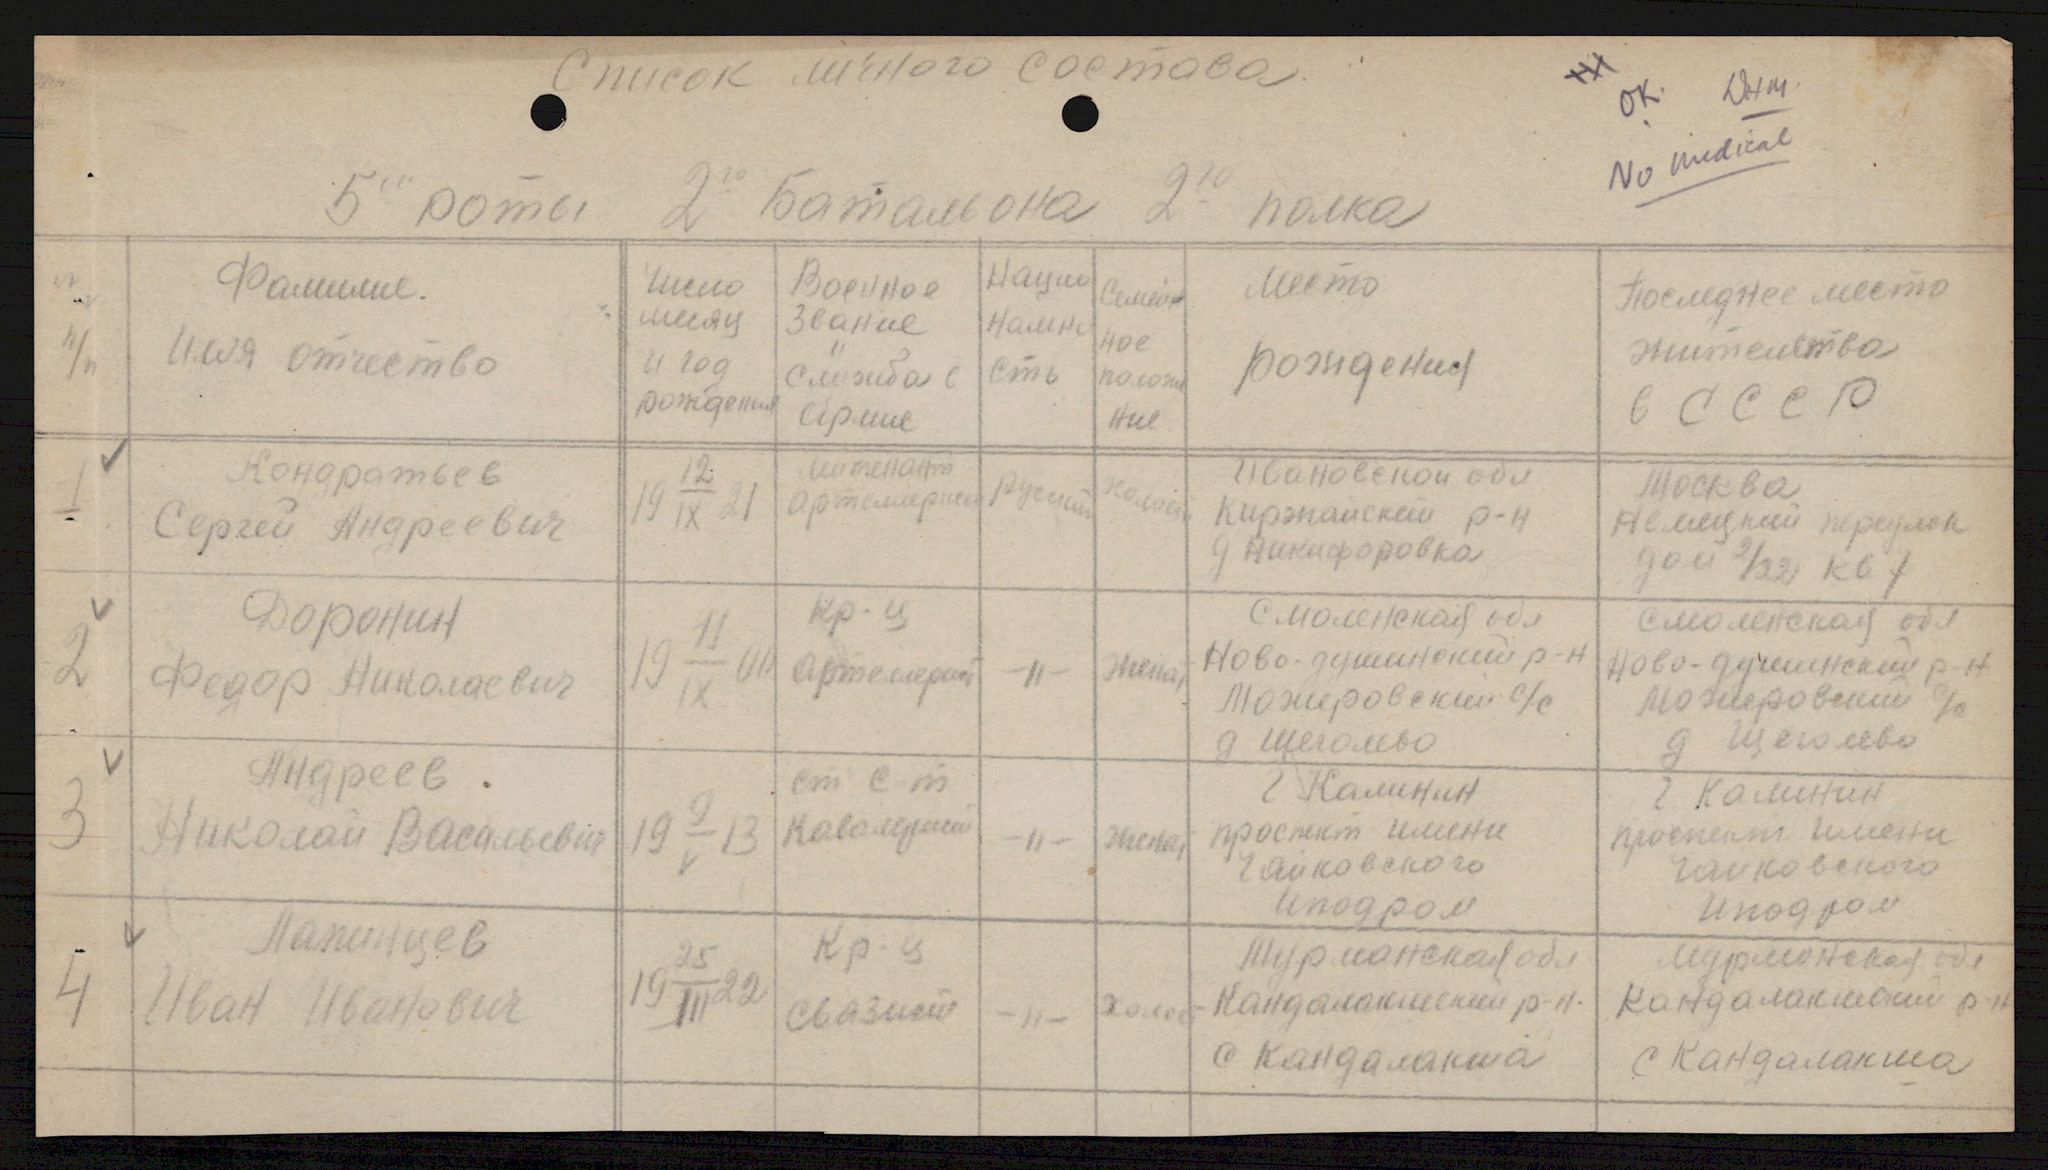 Список личного состава
OK.
No medical
5ой роты 2го Батальона 2го полка
п/п
Фамилие.
Имя отчество
Число
месяц
и год
рождения
Военное
Звание
"
Служба в
Армие
Нацио
нально
сть
Семей
ное
положе
ние
Место
рождения
Последнее место
жительства
в СССР
1
Кондратьев
Сергей Андреевич
19 12/IX 21
лиитенант
артеллерист
Руский
холост
Ивановской обл
Киржайский р-н
д Никифоровка
Москва
Немецкий переулок
дом 9/22 кв 1
2
Доронин
Федор Николаевич
19 11/IX 00
Кр-ц
артеллерист
-"-
женат
Смоленская обл
Ново-душинский р-н
Можеровский с/с
д Щегольво
Смоленская обл
Ново-душинский р-н
Можеровский с/с
д Щегольво
3
Андреев
Николай Васильевич
19 9/V 13
ст с-т
Кавалерист
-"-
женат
г Калинин
проспект имени
Чайковского
Иподром
г Калинин
проспект имени
Чайковского
Иподром
4
Лапинцев
Иван Иванович
19 25/III 22
Кр-ц
связист
-"-
холост
Мурманская обл
Кандалакшский р-н.
с Кандалакша
Мурманская обл
Кандалакшский р-н
с Кандалакша